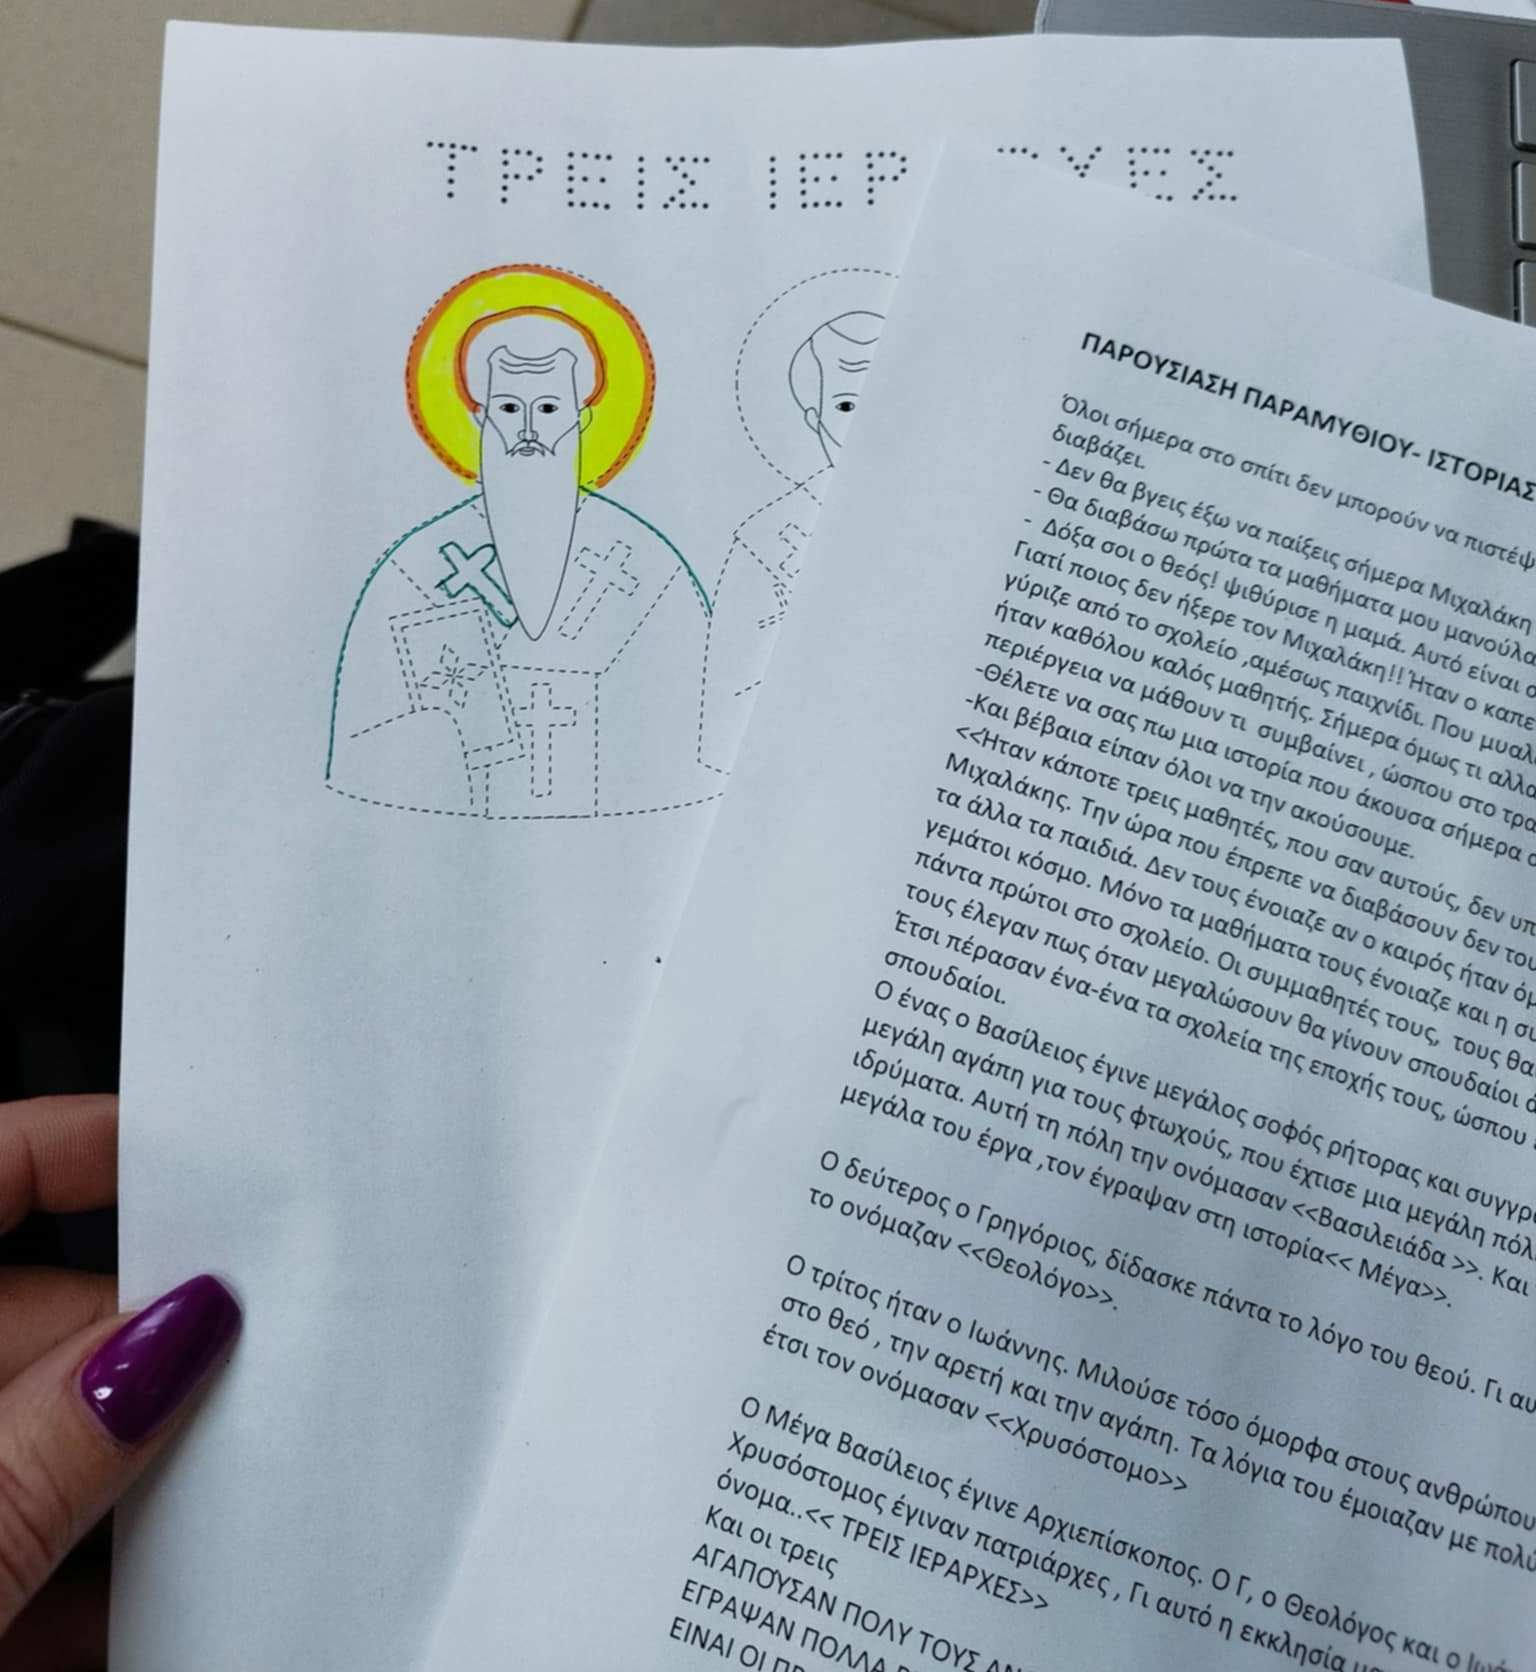 ΤΡΕΙΣ ΙΕΡ ΧΕΣ
ΠΑΡΟΥΣΙΑΣΗ ΠΑΡΑΜΥΘΙΟΥ- ΙΣΤΟΡΙΑΣ
Όλοι σήμερα στο σπίτι δεν μπορούν να
διαβάζει.
- Δεν θα βγεις έξω να παίξεις σήμερα Μιχαλάκη
- Θα διαβάσω πρώτα τα μαθήματα μου μανούλα
- Δόξα σοι ο θεός! ψιθύρισε η μαμά. Αυτό είναι
Γιατί ποιος δεν ήξερε τον Μιχαλάκη!! Ήταν ο
γύριζε από το σχολείο ,αμέσως παιχνίδι. Που
ήταν καθόλου καλός μαθητής. Σήμερα όμως τι
περιέργεια να μάθουν τι συμβαίνει , ώσπου στο
-Θέλετε να σας πω μια ιστορία που άκουσα σήμερα
-Και βέβαια είπαν όλοι να την ακούσουμε.
<<Ήταν κάποτε τρεις μαθητές, που σαν αυτούς, δεν
Μιχαλάκης. Την ώρα που έπρεπε να διαβάσουν δεν
τα άλλα τα παιδιά. Δεν τους ένοιαζε αν ο καιρός ήταν
γεμάτοι κόσμο. Μόνο τα μαθήματα τους ένοιαζε και η
πάντα πρώτοι στο σχολείο. Οι συμμαθητές τους, τους
τους έλεγαν πως όταν μεγαλώσουν θα γίνουν σπουδαίοι
Έτσι πέρασαν ένα-ένα τα σχολεία της εποχής τους, ώσπου
σπουδαίοι.
Ο ένας ο Βασίλειος έγινε μεγάλος σοφός ρήτορας και
μεγάλη αγάπη για τους φτωχούς, που έχτισε μια μεγάλη
ιδρύματα. Αυτή τη πόλη την ονόμασαν <<Βασιλειάδα >>. Και
μεγάλα του έργα ,τον έγραψαν στη ιστορία<< Μέγα>>.
Ο δεύτερος ο Γρηγόριος, δίδασκε πάντα το λόγο του θεού. Γι
το ονόμαζαν <<Θεολόγο>>.
Ο τρίτος ήταν ο Ιωάννης. Μιλούσε τόσο όμορφα στους
στο θεό , την αρετή και την αγάπη. Τα λόγια του έμοιαζαν με
έτσι τον ονόμασαν <<Χρυσόστομο>>
Ο Μέγα Βασίλειος έγινε Αρχιεπίσκοπος. Ο Γ, ο Θεολόγος και ο
Χρυσόστομος έγιναν πατριάρχες , Γι αυτό η εκκλησία
όνομα..<< ΤΡΕΙΣ ΙΕΡΑΡΧΕΣ>>
Και οι τρεις
ΑΓΑΠΟΥΣΑΝ ΠΟΛΥ ΤΟΥΣ
ΕΓΡΑΨΑΝ ΠΟΛΛΑ
ΕΙΝΑΙ ΟΙ